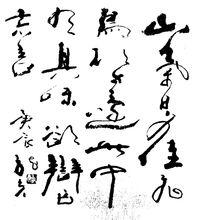 山氣日夕佳飛
鳥相與還此中
有真欲辯已
忘言 庚辰